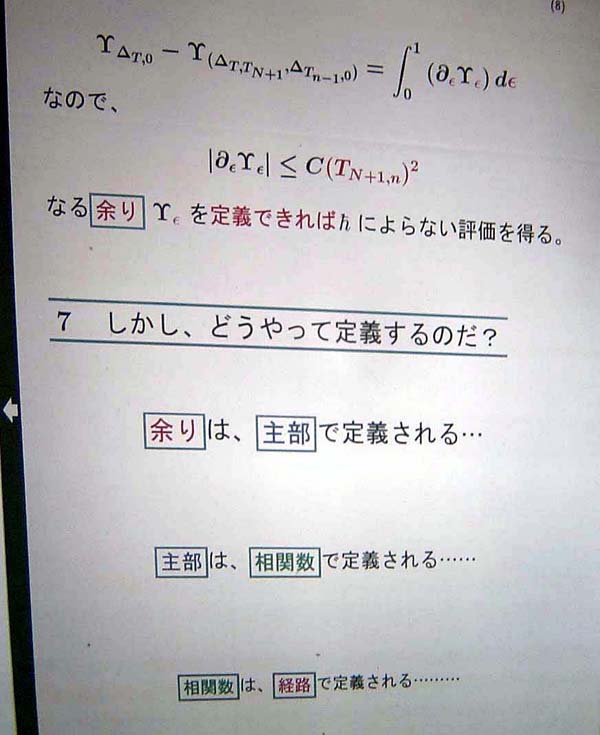 (8)
ϒ_{Δ_{T,0}} − ϒ_{(Δ_{T,T_{N+1}},Δ_{T_{n−1},0})} = ∫_0^1 (∂_ϵϒ_ϵ) dϵ
なので、
|∂_ϵϒ_ϵ| ≤ C(T_{N+1,n})^2
なる余り ϒ_ϵ を定義できればℏによらない評価を得る。
7 しかし、どうやって定義するのだ?
余りは、主部で定義される…
主部は、相関数で定義される……
相関数は、経路で定義される………